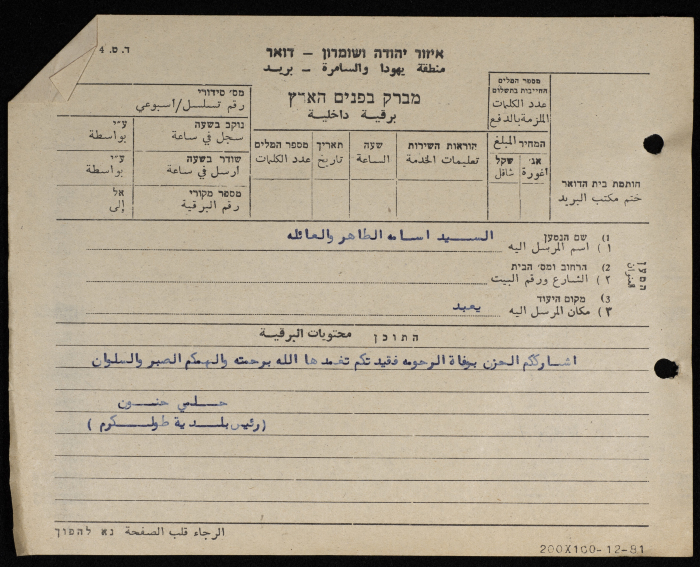 ד. ט. 4
איזור יהודה ושומרון – דואר
منطقة يهودا والسامرة – بريد
מברק בפנים הארץ
برقية داخلية
מס׳ סידורי
رقم تسلسل/اسبوعي
נוקב בשעה ע״י
سجل في ساعة بواسطة
שודר בשעה ע״י
ارسل في ساعة بواسطة
מספר מקורי אל
رقم البرقية إلى
מספר המלים
عدد الكلمات
תאריך
تاريخ
שעה
الساعة
הוראות השירות
تعليمات الخدمة
מספר המלים
החייבות בתשלום
عدد الكلمات
الملزمة بالدفع
המחיר المبلغ
שקל אג׳
شاقل اغورة
חותמת בית הדואר
ختم مكتب البريد
המען
العنوان
1) שם הנמען
١) اسم المرسل اليه السيد اسامه الطاهر والعائله
2) הרחוב ומס׳ הבית
٢) الشارع ورقم البيت
3) מקום היעוד
٣) مكان المرسل اليه يعبد
התוכן محتويات البرقية
اشارككم الحزن بوفاة الرحومه فقيدتكم تغمدها الله برحمته والهمكم الصبر والسلوان
حلمي حنون
(رئيس بلدية طولكرم)
الرجاء قلب الصفحة נא להפוך
200X100-12-81